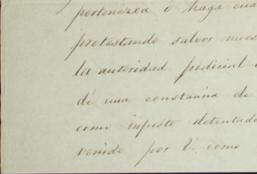 pertenezca ó haga cua
protestando salvos nues
la autoridad judicial
dé una constancia de
como injusto detentado
venido por V. como